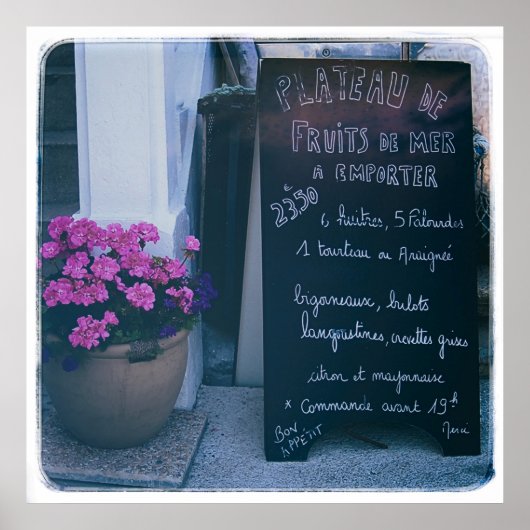 PLATEAU DE
FRUITS DE MER
A EMPORTER
23,50 €
6 huitres, 5 Palourdes
1 tourteau ou Araignée
bigorneaux, bulots
langoustines, crevettes grises
citron et mayonnaise
* Commande avant 19h
BON APPÉTIT
Merci